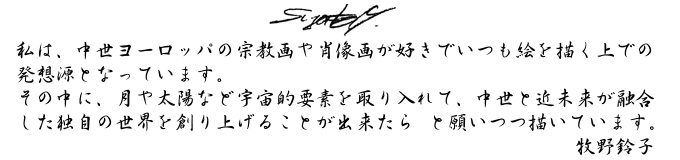 私は、中世ヨーロッパの宗教画や肖像画が好きでいつも絵を描く上での
発想源となっています。
その中に、月や太陽など宇宙的要素を取り入れて、中世と近未来が融合
した独自の世界を創り上げることが出来たら と願いつつ描いています。
牧野鈴子